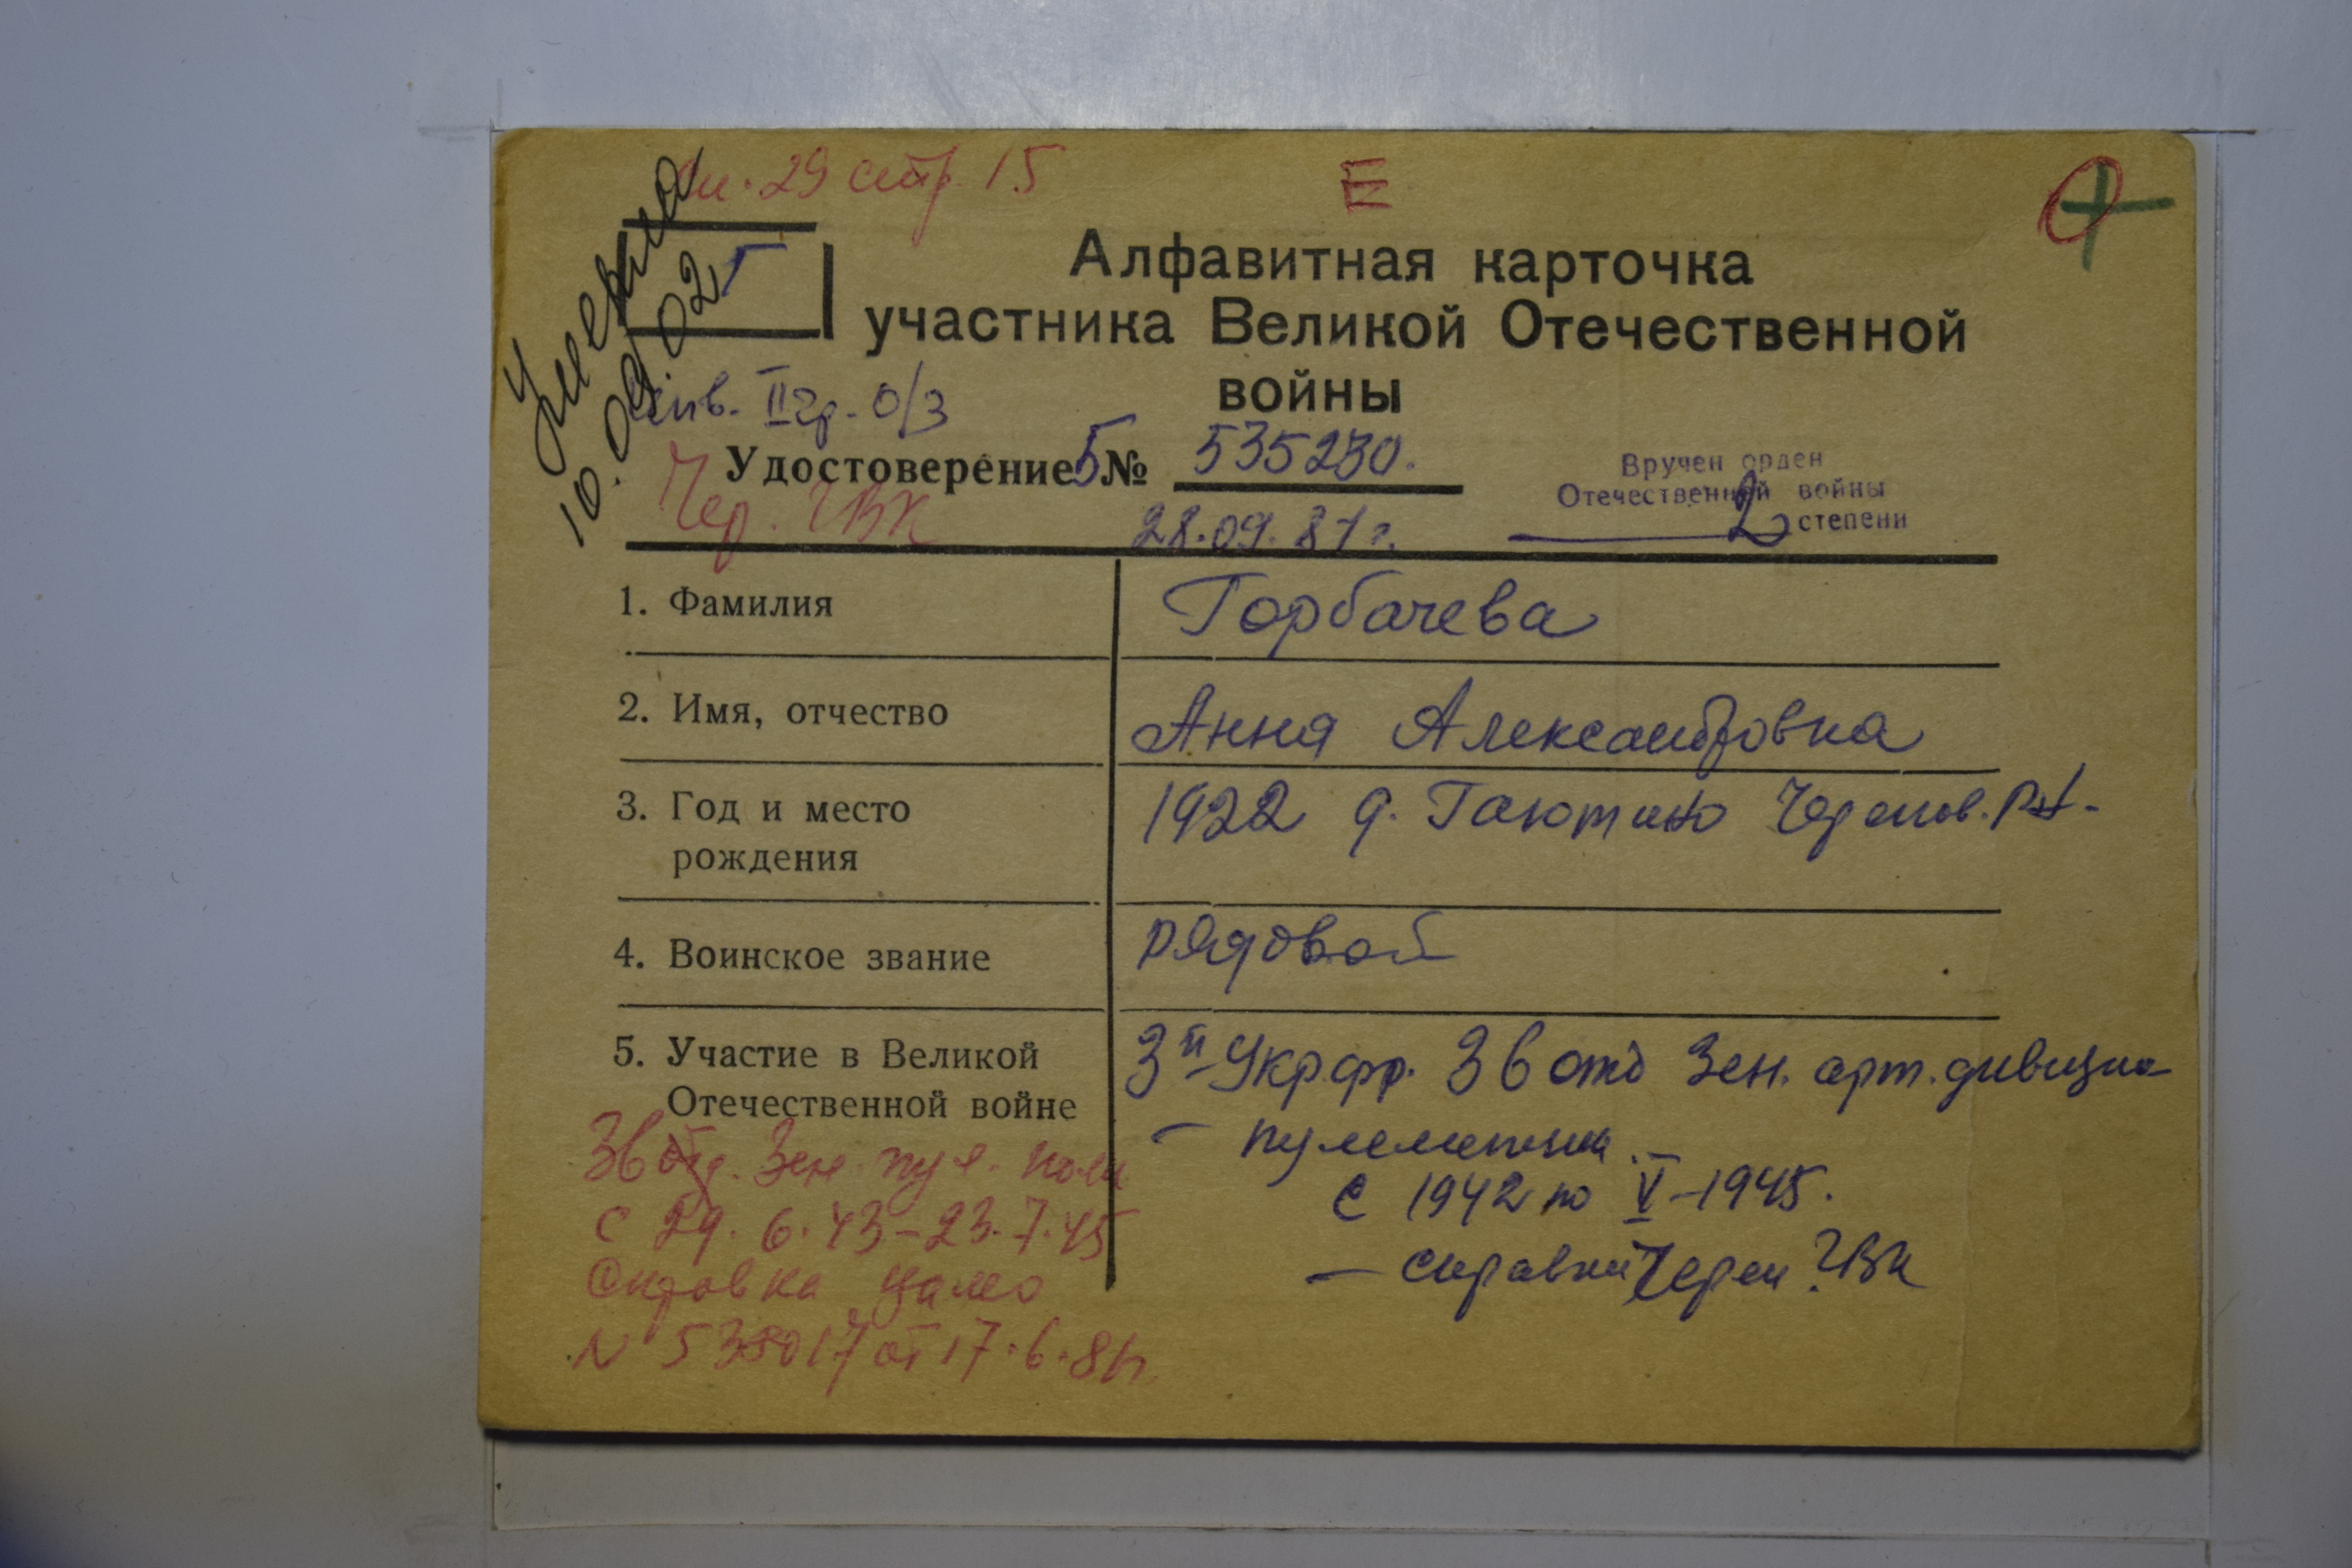 оп. 29 стр 15
Е
Умерла
10.09.02
Г
Алфавитная карточка
участника Великой Отечественной
войны
инв. II гр. о/з
Удостоверение Б № 535230.
Чер. ГВК
28.09.81 г.
Вручен орден
Отечественной войны
2 степени
1. Фамилия
Горбачева
2. Имя, отчество
Анна Александровна
3. Год и место
рождения
1922 д. Гаютино Черепов. р-н.
4. Воинское звание
рядовой
5. Участие в Великой
Отечественной войне
3й Укр.фр. 36 отд зен. арт. дивизио
– пулеметчик
с 1942 по V – 1945.
– справки Череп. ГВК
36 отд. зен. пул. полк
с 29.6.43 – 23.7.45
Справка ЦАМО
N 538017 от 17.6.81 г.